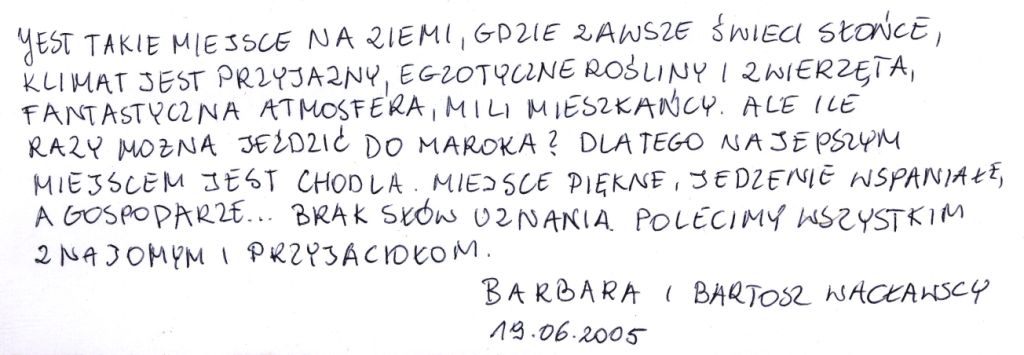 JEST TAKIE MIEJSCE NA ZIEMI, GDZIE ZAWSZE ŚWIECI SŁOŃCE,
KLIMAT JEST PRZYJAZNY, EGZOTYCZNE ROŚLINY I ZWIERZĘTA,
FANTASTYCZNA ATMOSFERA, MILI MIESZKAŃCY. ALE ILE
RAZY MOŻNA JEŹDZIĆ DO MAROKA? DLATEGO NAJLEPSZYM
MIEJSCEM JEST CHODLA. MIEJSCE PIĘKNE, JEDZENIE WSPANIAŁE,
A GOSPODARZE... BRAK SŁÓW UZNANIA. POLECIMY WSZYSTKIM
ZNAJOMYM I PRZYJACIOŁOM.
BARBARA I BARTOSZ WACŁAWSCY
19.06.2005